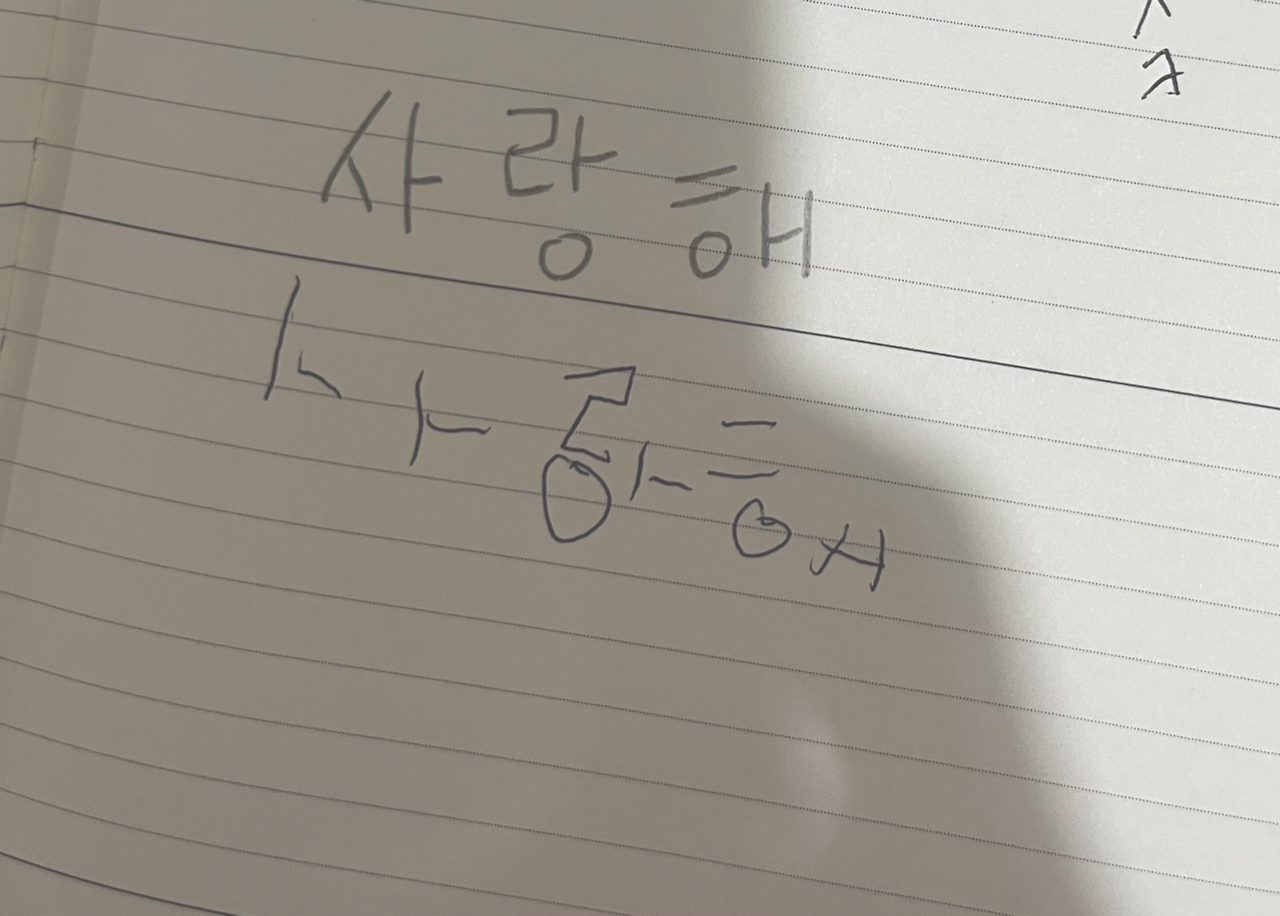 사랑해
사랑해